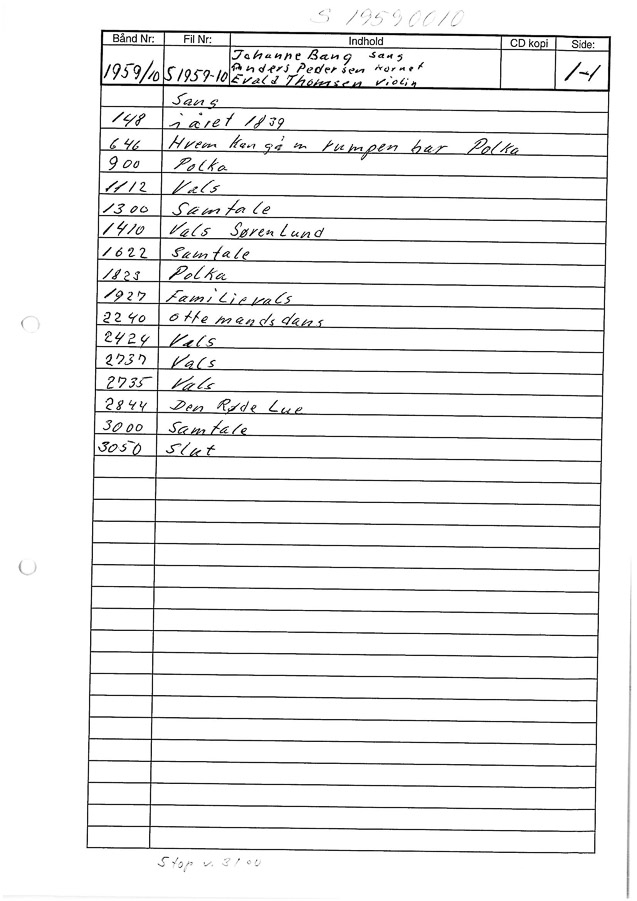 S 19590010
Bånd Nr: Fil Nr: Indhold CD kopi Side:
1959/10 S1959-10 Johanne Bang sang 1-1
Anders Pedersen Kornet
Evald Thomsen violin
Sang
148 i året 1839
646 Hvem kan gå m rumpen bar Polka
900 Polka
1112 Vals
1300 Samtale
1410 Vals Søren Lund
1622 Samtale
1823 Polka
1927 Familievals
2240 ottemandsdans
2424 Vals
2737 Vals
2735 Vals
2844 Den Røde Lue
3000 Samtale
3050 Slut
Stop v. 3100